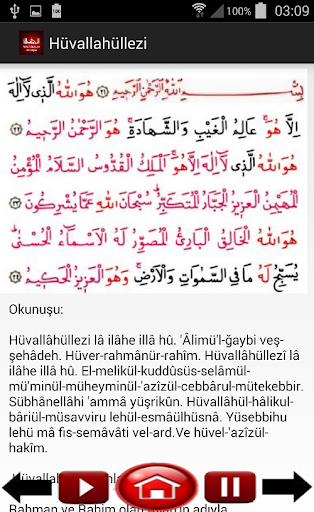 100% 03:09
Hüvallahüllezi
بِسْمِ اللّٰهِ الرَّحْمٰنِ الرَّحِيمِ ﴿٢١﴾ هُوَ اللّٰهُ الَّذ۪ى لَٓا اِلٰهَ
اِلَّا هُوَ عَالِمُ الْغَيْبِ وَالشَّهَادَةِ هُوَ الرَّحْمٰنُ الرَّح۪يمُ ﴿٢٢﴾
هُوَ اللّٰهُ الَّذ۪ى لَٓا اِلٰهَ اِلَّا هُوَ اَلْمَلِكُ الْقُدُّوسُ السَّلَامُ الْمُؤْمِنُ
الْمُهَيْمِنُ الْعَز۪يزُ الْجَبَّارُ الْمُتَكَبِّرُ سُبْحَانَ اللّٰهِ عَمَّا يُشْرِكُونَ ﴿٢٣﴾
هُوَ اللّٰهُ الْخَالِقُ الْبَارِئُ الْمُصَوِّرُ لَهُ الْاَسْمَٓاءُ الْحُسْنٰى
يُسَبِّحُ لَهُ مَا فِى السَّمٰوَاتِ وَالْاَرْضِ وَهُوَ الْعَز۪يزُ الْحَك۪يمُ ﴿٢٤﴾
Okunuşu:
Hüvallâhüllezi lâ ilâhe illâ hû. 'Âlimü'l-ğaybi veş-
şehâdeh. Hüver-rahmânür-rahîm. Hüvallâhüllezî lâ
ilâhe illâ hû. El-melikül-kuddûsüs-selâmül-
mü'minül-müheyminül-'azîzül-cebbârul-mütekebbir.
Sübhânellâhi 'ammâ yüşrikûn. Hüvallâhül-hâlikul-
bâriül-müsavviru lehül-esmâülhüsnâ. Yüsebbihu
lehü mâ fis-semâvâti vel-ard.Ve hüvel-'azîzül-
hakîm.
Rahman ve Rahim olan Allah'ın adıyla